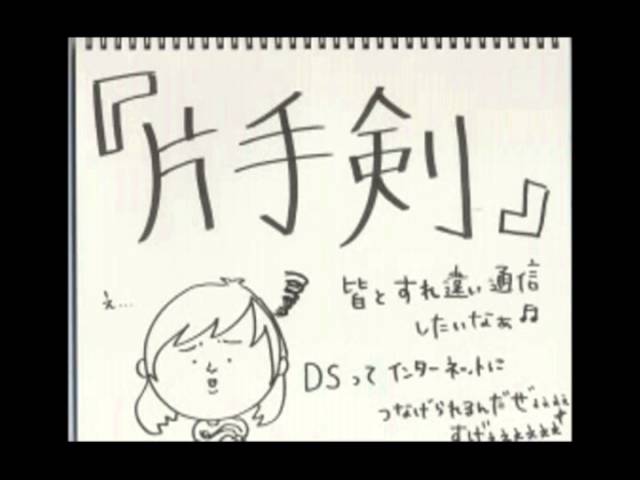 『片手剣』
え…
皆とすれ違い通信
したいなぁ♫
DSってインターネットに
つなげられるんだぜぇぇぇぇ
すげぇぇぇぇぇぇ